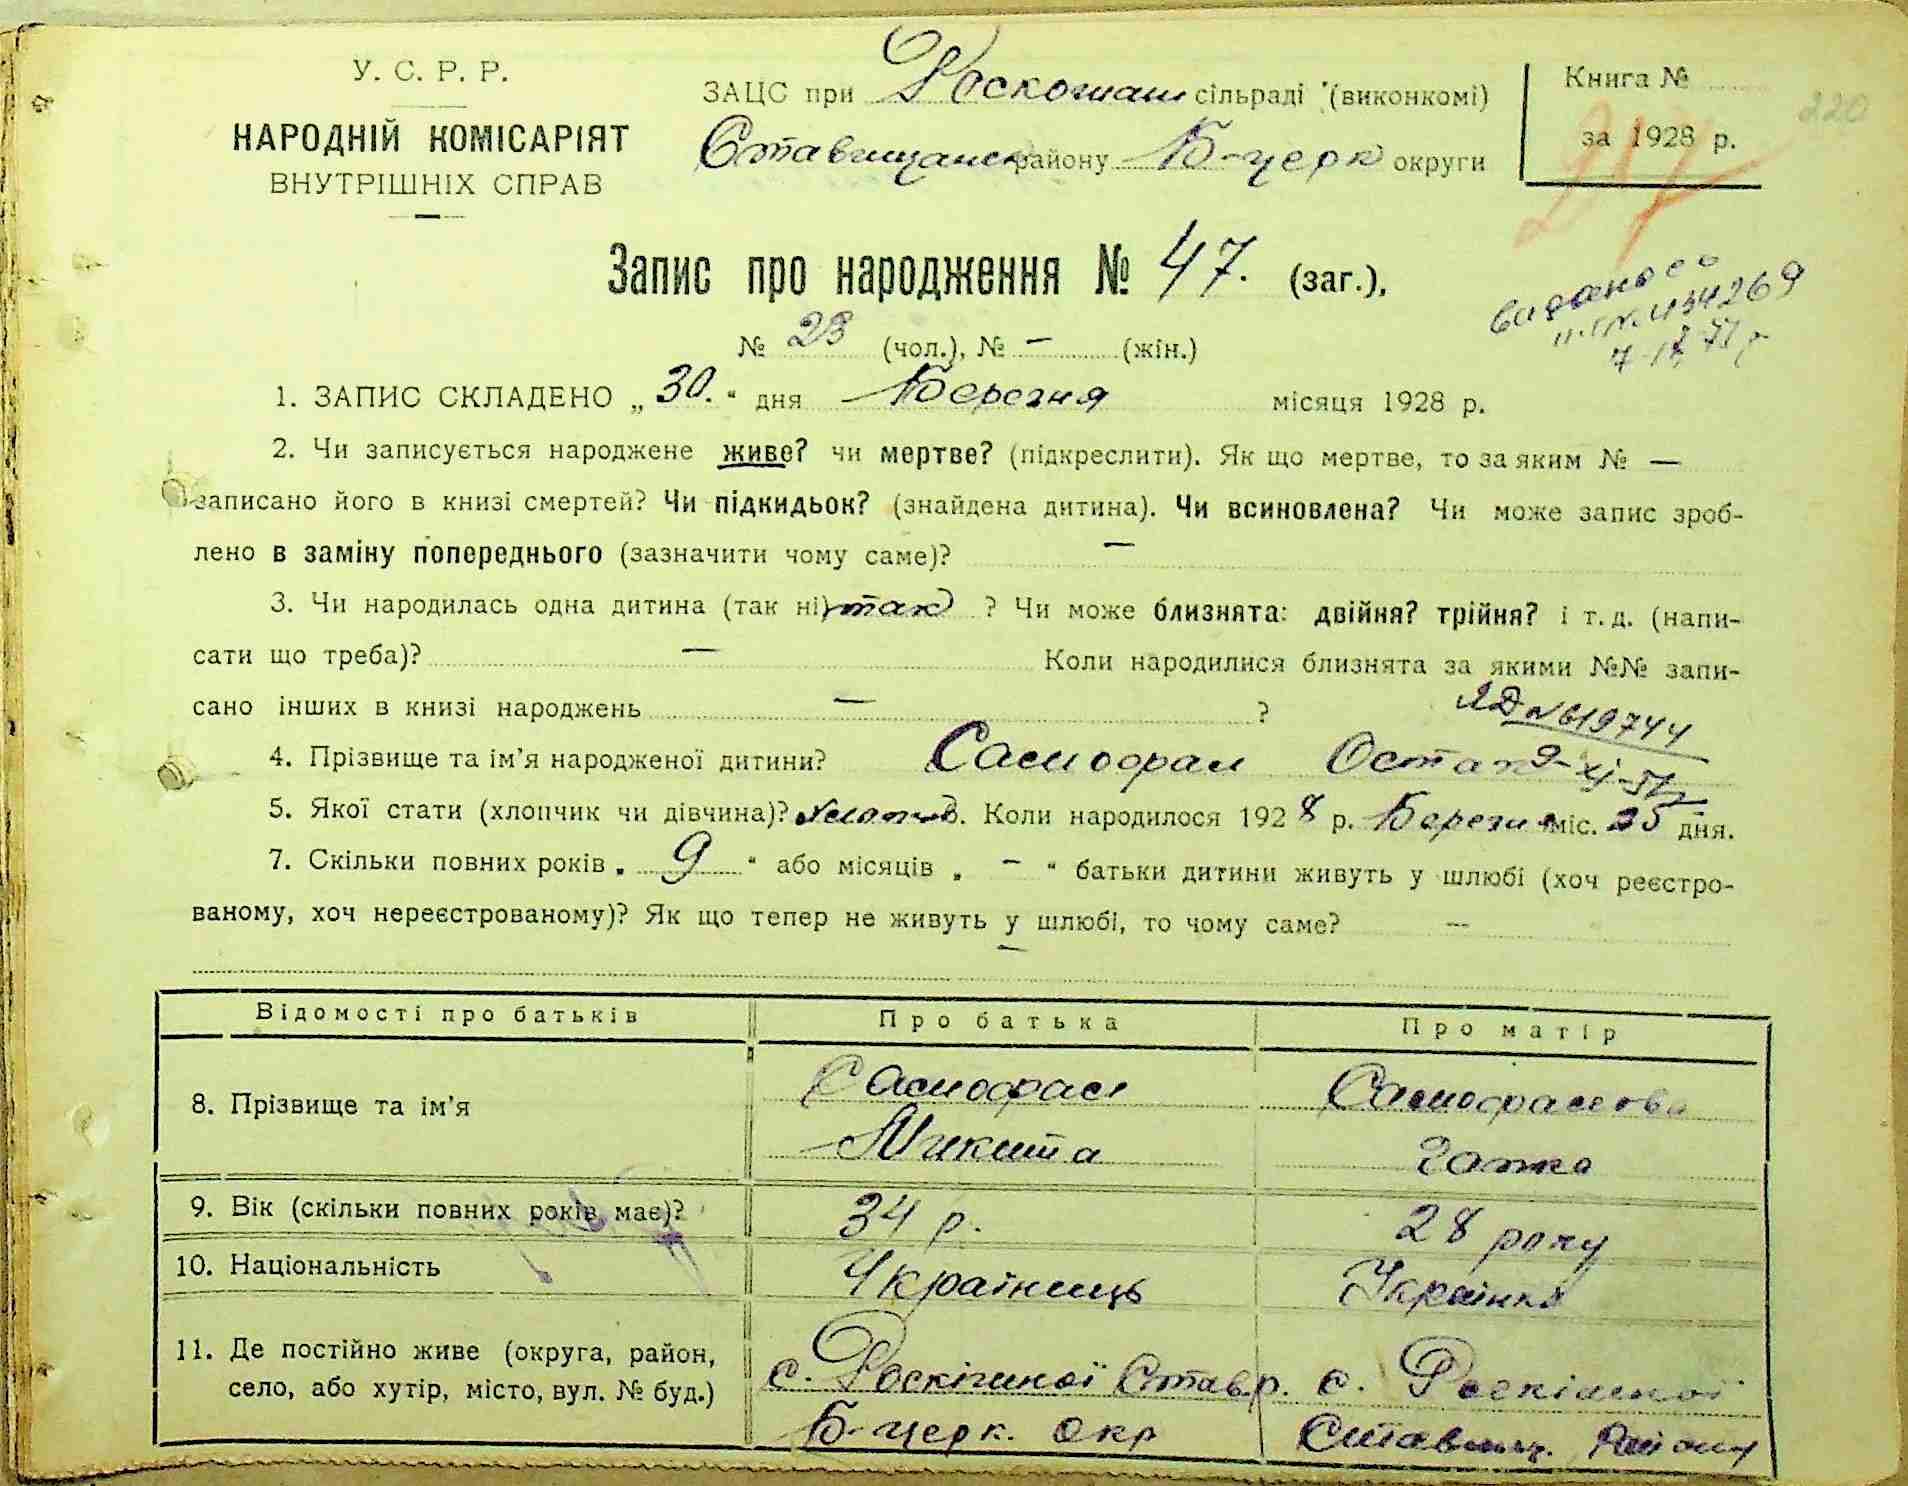 У. С. Р. Р.
НАРОДНІЙ КОМІСАРІЯТ
ВНУТРІШНІХ СПРАВ
ЗАЦС при Роскошаш сільраді (виконкомі)
Ставищанск району Б-церк округи
Книга №
за 1928 р.
220
217
Запис про народження № 47. (заг.),
№ 23 (чол.), № — (жін.)
видано
1. ЗАПИС СКЛАДЕНО „30.“ дня Березня місяця 1928 р.
2. Чи записується народжене живе? чи мертве? (підкреслити). Як що мертве, то за яким № —
записано його в книзі смертей? Чи підкидьок? (знайдена дитина). Чи всиновлена? Чи може запис зроб-
лено в заміну попереднього (зазначити чому саме)? —
3. Чи народилась одна дитина (так ні) так ? Чи може близнята: двійня? трійня? і т. д. (напи-
сати що треба)? — Коли народилися близнята за якими №№ запи-
сано інших в книзі народжень — ?
№ 619744
4. Прізвище та ім’я народженої дитини? Самофал Остап
5. Якої стати (хлопчик чи дівчина)? хлопчв. Коли народилося 1928 р. Березня міс. 25 дня.
7. Скільки повних років „ 9 “ або місяців „ — “ батьки дитини живуть у шлюбі (хоч реєстро-
ваному, хоч нереєстрованому)? Як що тепер не живуть у шлюбі, то чому саме? —
Відомості про батьків Про батька Про матір
8. Прізвище та ім’я Самофал Самофалова
Микита Гапка
9. Вік (скільки повних років має)? 34 р. 28 року
10. Національність Українець Українка
11. Де постійно живе (округа, район, с. Роскішної Став.р. с. Роскішної
село, або хутір, місто, вул. № буд.) Б-церк. окр Ставищ. Району